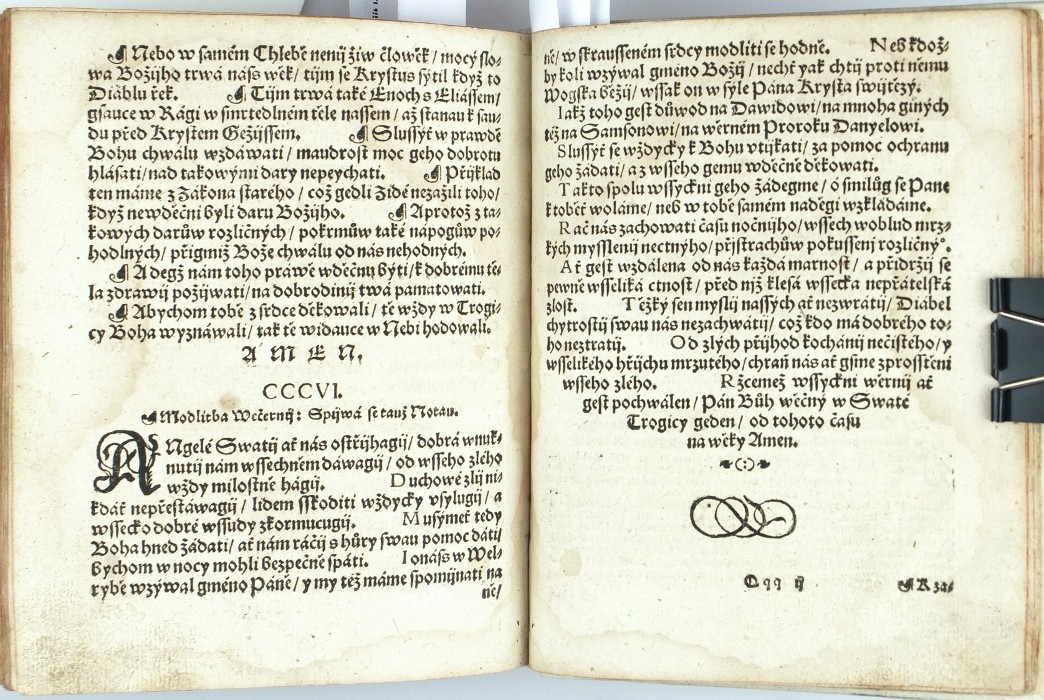 ¶ Nebo w samém Chlebě nenij žiw člowěk / mocý slo-
wa Božijho trwá náss wěk / tijm se Krystus sýtil když to
Diáblu řek. ¶ Tijm trwá také Enoch s Eliássem /
gsauce w Rági w smrtedlném těle nassem / až stanau k sau-
du před Krystem Gežijssem. ¶ Slussýť w prawdě
Bohu chwálu wzdáwati / maudrost moc geho dobrotu
hlásati / nad takowými dary nepeychati. ¶ Přijklad
ten máme z Zákona starého / což gedli Židé nezažili toho /
když newděčni byli daru Božijho. ¶ A protož z ta-
kowých darůw rozličných / pokrmůw také nápogůw po-
hodlných / přigmiž Bože chwálu od nás nehodných.
¶ A degž nám toho práwě wděčnu býti / k dobrému tě-
la zdrawij požijwati / na dobrodinij twá pamatowati.
¶ Abychom tobě z srdce děkowali / tě wždy w Trogi-
cy Boha wyznáwali / tak tě widauce w Nebi hodowali.
A M E N.
CCCVI.
¶ Modlitba Wečernij: Spijwá se tauž Notau.
ANgelé Swatij ať nás ostřijhagij / dobrá wnuk-
nutij nám wssechněm dáwagij / od wsseho zlého
wždy milostně hágij. Duchowé zlij ni-
kdáť nepřestáwagij / lidem sskoditi wždycky vsylugij / a
wssecko dobré wssudy zkormucugij. Musýmeť tedy
Boha hned žádati / ať nám ráčij s hůry swau pomoc dáti /
bychom w nocy mohli bezpečně spáti. Ionáss w Wel-
rybě wzýwal gméno Páně / y my též máme spomijnati na
ně /
ně / w skrausseném srdcy modliti se hodně. Neb kdož-
by koli wzýwal gméno Božij / nechť yak chtij proti němu
Wogska běžij / wssak on w syle Pána Krysta swijtězý.
Iakž toho gest důwod na Dawidowi / na mnoha giných
též na Samsonowi / na wěrném Proroku Danyelowi.
Slussýť se wždycky k Bohu vtijkati / za pomoc ochranu
geho žádati / a z wsseho gemu wděčně děkowati.
Takto spolu wssyckni geho žádegme / ó smilůg se Pane
k toběť woláme / neb w tobě samém naděgi wzkládáme.
Rač nás zachowati času nočnijho / wssech woblud mrz-
kých myssleníj nectného / přijstrachůw pokussenj rozličnýᵒ.
Ať gest wzdálena od nás každá marnost / a přidržij se
pewně wsseliká ctnost / před nijž klesá wssecka nepřátelská
zlost. Těžký sen myslij nassých ať nezwrátij / Diábel
chytrostij swau nás nezachwátij / což kdo má dobrého to-
ho neztratij. Od zlých přijhod kochánij nečistého / y
wsselikého hřijchu mrzutého / chraň nás ať gsme zprosstěni
wsseho zlého. Ržcemež wssyckni wěrnij ať
gest pochwálen / Pán Bůh wěčný w Swaté
Trogicy geden / od tohoto času
na wěky Amen.
Qqq ij ¶ Rza-